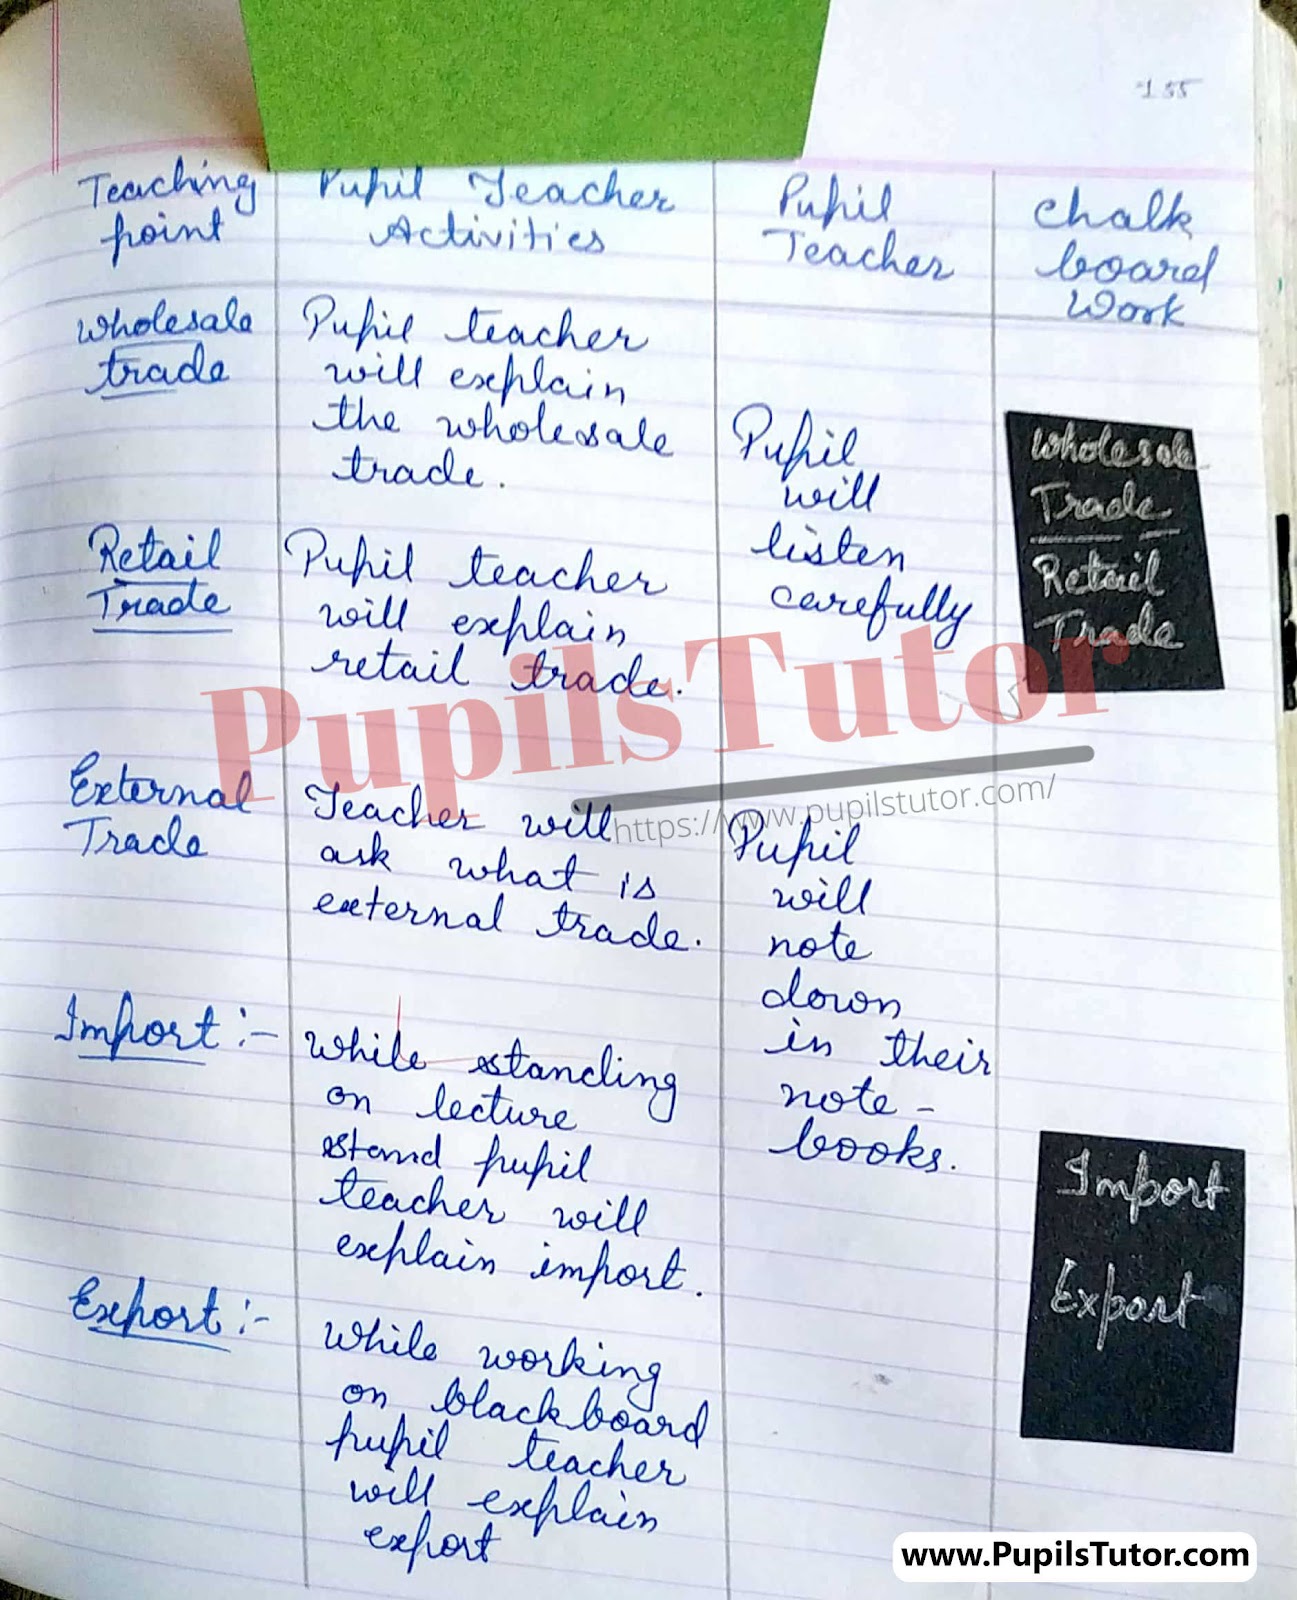 155
Teaching
point
Pupil Teacher
Activities
Pupil
Teacher
Chalk
board
Work
Wholesale
trade
Pupil teacher
will explain
the wholesale
trade.
Pupil
will
listen
carefully
Wholesale
Trade
Retail
Trade
Retail
Trade
Pupil teacher
will explain
retail trade.
PupilsTutor
https://www.pupilstutor.com/
External
Trade
Teacher will
ask what is
external trade.
Pupil
will
note
down
in their
note-
books.
Import:-
While standing
on lecture
stand pupil
teacher will
explain import.
Import
Export
Export:-
While working
on blackboard
pupil teacher
will explain
export
www.PupilsTutor.com